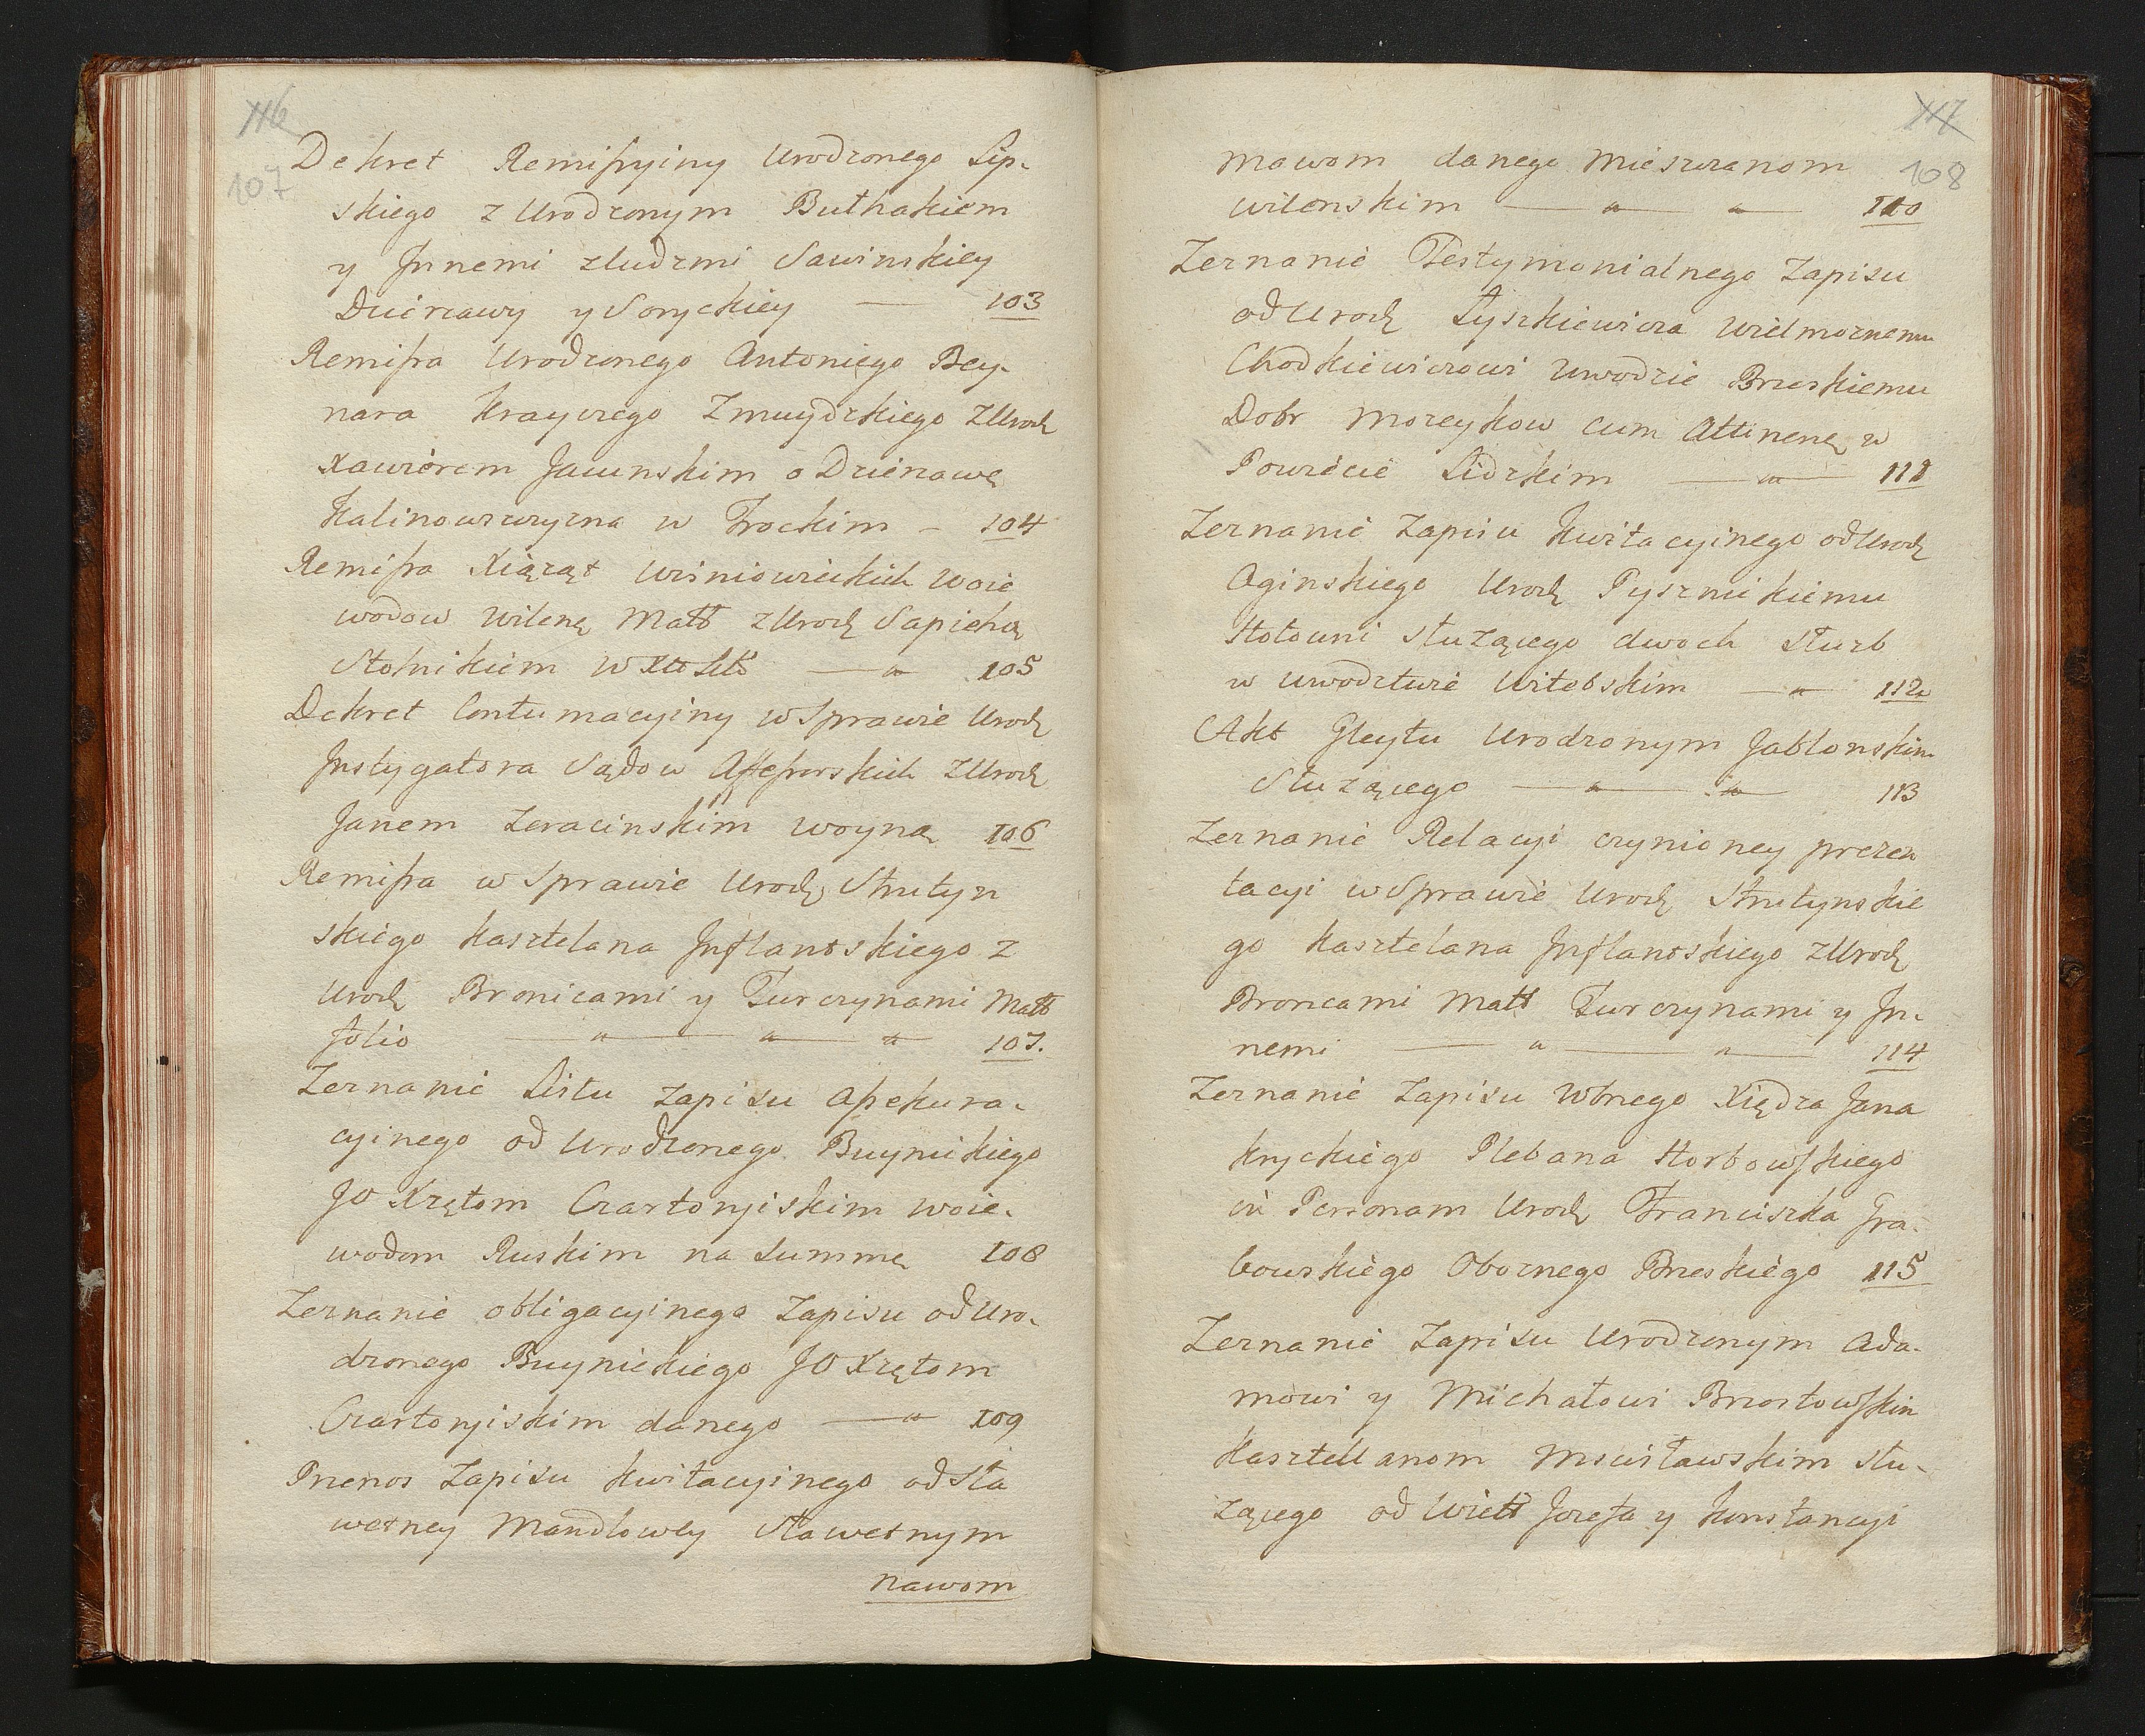 116
107
Dekret Remissyiny Urodzonego Lip-
skiego z Urodzonym Buthakiem
y Jnnemi zludzmi Sawinskiey
Dzierzawy y Soryckiey — 103
Remissa Urodzonego Antoniego Bey-
nara Krayczego Zmuydzkiego zUrodz
Xawierem Jawnskim o Dzierzawę
Kalinowszczyzna w Trockim — 104
Remissa Xiąząt Wisniowieckich Woie
wodow Wilenę Małż zUrodz Sapiehą
Stolnikiem W Xtt Litt — " 105
Dekret Contumacyiny wSprawie Urodz
Jnstygatora Sądow Assessorskich zUrodz
Janem Leracinskim Woyną 106
Remissa wSprawie Urodz Strutyn
skiego Kasztelana Jnflantskiego z
Urodz Bronicami y Turczynami Małż
folio — " — " — " — 107.
Zeznanie Listu Zapisu Assekura-
cyinego od Urodzonego Buynickiego
JO Xzętom Czartoryiskim Woie-
wodom Ruskim na Summę 108
Zeznanie obligacyinego Zapisu od Uro-
dzonego Buynickiego JO Xzętom
Czartoryiskim danego — " 109
Przenos Zapisu kwitacyinego od Sła
wetney Mandlowey Sławetnym
nawom
117
108
mawom danego Mieszczanom
Wilenskim — " — " — 110
Zeznanie Testymonialnego Zapisu
od Urodz Lyszkiewicza Wielmoznemu
Chodkiewiczowi Uwodzie Brzeskiemu
Dobr Morzykow cum Attinenę w
Powiecie Lidzkim — " — 111
Zeznanie Zapisu kwitacyinego od Urodz
Oginskiego Urodz Pysznickiemu
Hołowni słuzącego dwoch słuzb
w Uwodztwie Witebskim — " — 112
Akt Gleytu Urodzonym Jabłonskim
Słuzącego — " — " — 113
Zeznanie Relacyi czynioney prezen
tacyi wSprawie Urodz Strutynskie
go Kasztelana Jnflantskiego zUrodz
Broncami Małż Turczynami y Jn-
nemi — " — " — 114
Zeznanie Zapisu Wbnego Xiędza Jana
Kryckiego Plebana Horbowskiego
in Personam Urodz Franciszka Gra-
bowskiego Oboznego Brzeskiego 115
Zeznanie Zapisu Urodzonym Ada-
mowi y Michałowi Brzostowskim
Kasztellanom Mscisławskim słu-
zącego od Wielt Jozefa y Konstancyi